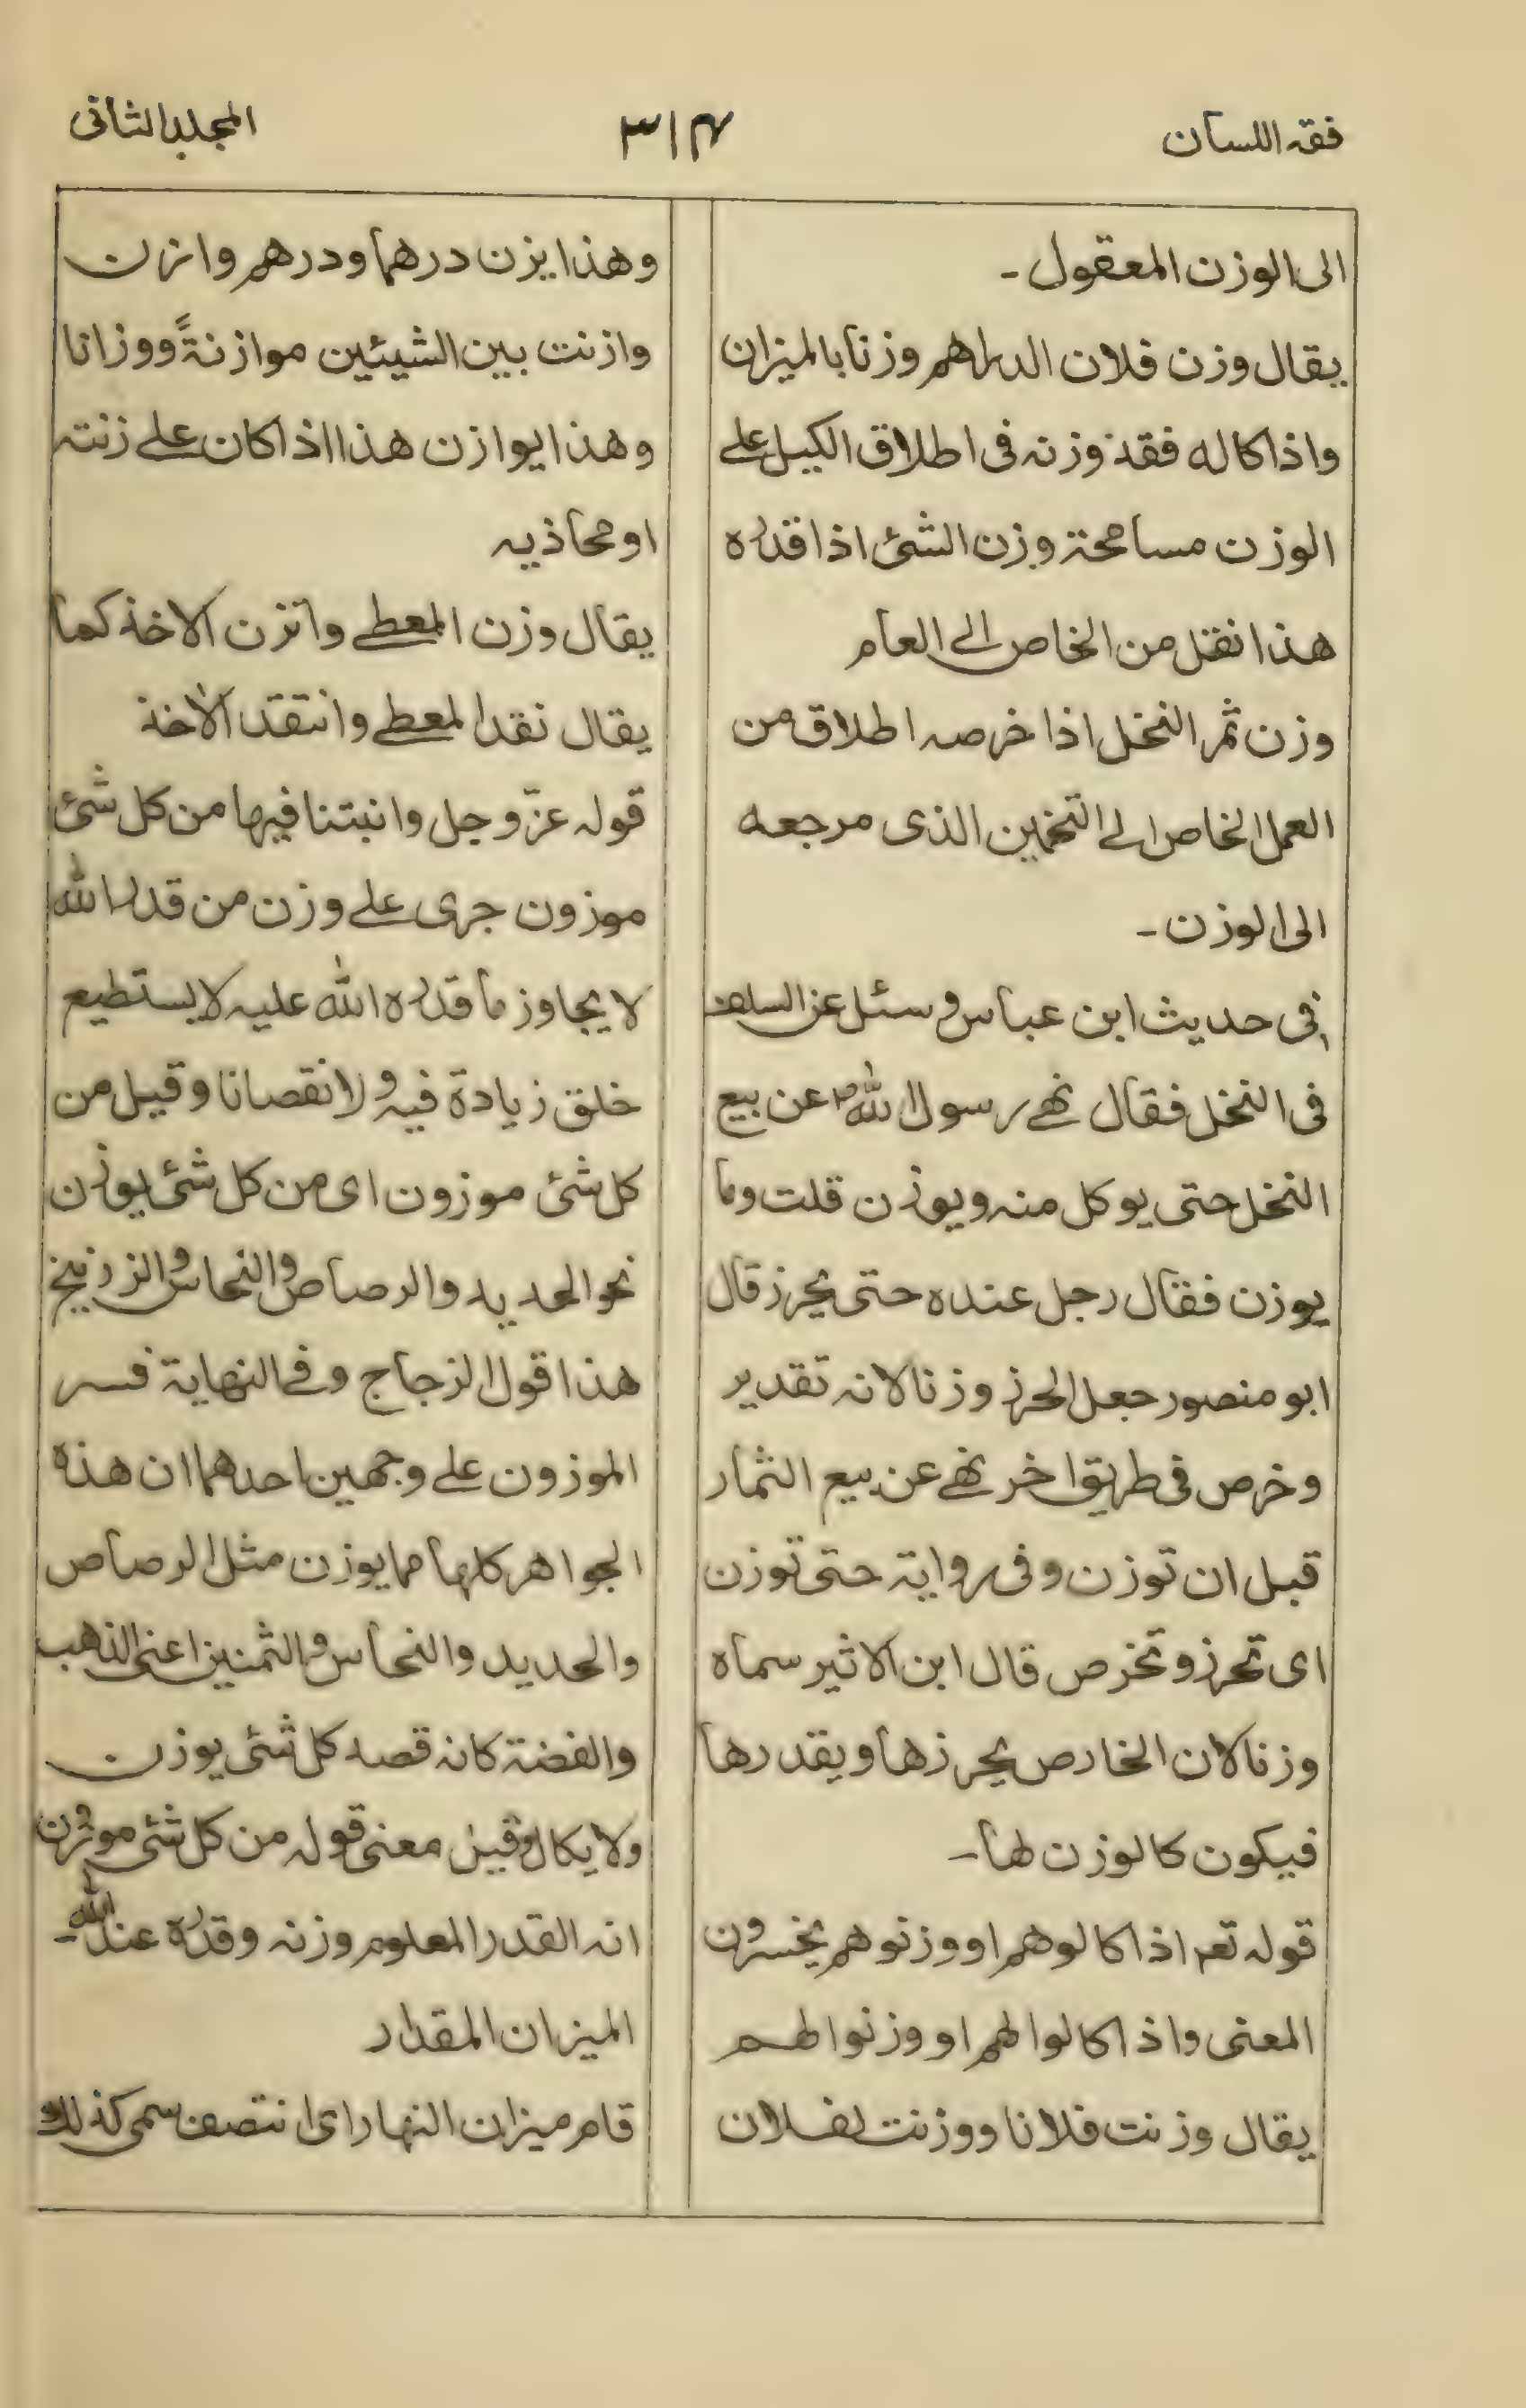 فقہ اللسان
۳۱۴
المجلد الثانی
الی الوزن المعقول۔
یقال وزن فلان الدراهم وزنا بالمیزان
واذا کاله فقد وزنه فی اطلاق الکیل علی
الوزن مسامحة وزن الشئ اذا قدره
هذا نقل من الخاص الی العام
وزن ثمر النخل اذا خرصه اطلاق من
العمل الخاص الی التخمین الذی مرجعه
الی الوزن۔
فی حدیث ابن عباس وسئل عن السلف
فی النخل فقال نهی رسول الله ؐ عن بیع
النخل حتی یوکل منه ویوزن قلت وما
یوزن فقال رجل عنده حتی یحرز قال
ابو منصور جعل الحرز وزنا لانه تقدیر
وخرص فی طریق اخر نهی عن بیع الثمار
قبل ان توزن وفی روایة حتی توزن
ای تحرز وتخرص قال ابن الاثیر سماه
وزنا لان الخارص یحرزها ویقدرها
فیکون کالوزن لها۔
قوله تعم اذا کالوهم او وزنوهم یخسرون
المعنی واذا کالوا لهم او وزنوا لهم
یقال وزنت فلانا ووزنت لفلان
وهذا یزن درهما ودرهم وازن
وازنت بین الشیئین موازنةً ووزانا
وهذا یوازن هذا اذا کان علی زنته
او محاذیه
یقال وزن المعطی واتزن الاخذ کما
یقال نقد المعطی وانتقد الاخذ
قوله عزّ وجل وانبتنا فیها من کل شئ
موزون جری علی وزن من قدر الله
لا یجاوز ما قدره الله علیه لا یستطیع
خلق زیادة فیه ولا نقصانا وقیل من
کل شئ موزون ای من کل شئ یوزن
نحو الحدید والرصاص والنحاس والزرنیخ
هذا قول الزجاج وفی النهایة فسر
الموزون علی وجهین احدهما ان هذه
الجواهر کلها مما یوزن مثل الرصاص
والحدید والنحاس والثمنین اعنی الذهب
والفضة کانه قصد کل شئ یوزن
ولا یکال وقیل معنی قوله من کل شئ موزون
انه القدر المعلوم وزنه وقدره عند الله۔
المیزان المقدار
قام میزان النهار ای انتصف سمی کذلک